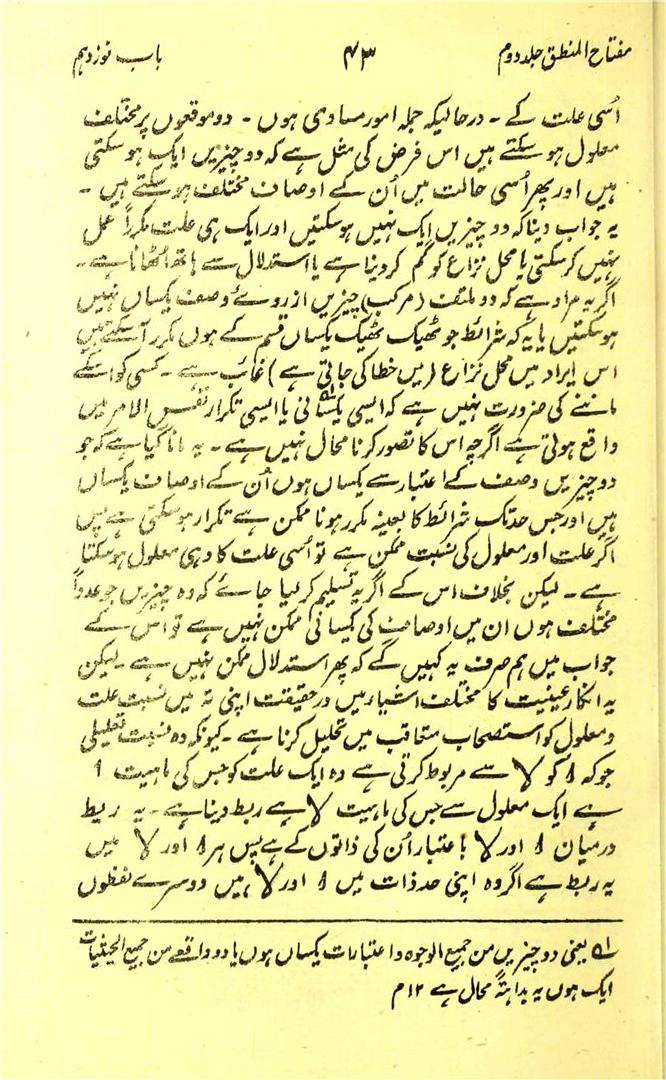 مفتاح المنطق جلد دوم ۴۳ باب نوزدہم
اُسی علت کے ۔ درحالیکہ جملہ امور مساوی ہوں ۔ دو موقعوں پر مختلف
معلول ہو سکتے ہیں اس فرض کی مثل ہے کہ دو چیزیں ایک ہو سکتی
ہیں اور پھر اُسی حالت میں اُن کے اوصاف مختلف ہو سکتے ہیں ۔
یہ جواب دینا کہ دو چیزیں ایک نہیں ہوسکتیں اور ایک ہی علت مکرراً عمل
نہیں کرسکتی یا محل نزاع کو گم کردینا ہے یا استدلال سے ہاتھ اُٹھانا ہے ۔
اگر یہ مراد ہے کہ دو ملتف (مرکب) چیزیں ازروئے وصف یکساں نہیں
ہوسکتیں یا یہ کہ شرائط جو ٹھیک ٹھیک یکساں قسم کے ہوں مکرر آسکتے ہیں
اس ایراد میں محل نزاع (میں خطا کی جاتی ہے) غائب ہے ۔ کسی کو اسکے
ماننے کی ضرورت نہیں ہے کہ ایسی یکسانی<sup>۱</sup> یا ایسی تکرار نفس الامر میں
واقع ہوتی ہے اگرچہ اس کا تصور کرنا محال نہیں ہے ۔ یہ مانا گیا ہے کہ جو
دو چیزیں وصف کے اعتبار سے یکساں ہوں اُن کے اوصاف یکساں
ہیں اور جس حد تک شرائط کا بعینہ مکرر ہونا ممکن ہے تکرار ہو سکتی ہے پس
اگر علت اور معلول کی نسبت ممکن ہے تو اُسی علت کا وہی معلول ہو سکتا
ہے ۔ لیکن بخلاف اس کے اگر یہ تسلیم کر لیا جائے کہ وہ چیزیں جو عدداً
مختلف ہوں ان میں اوصاف کی یکسانی ممکن نہیں ہے تو اس کے
جواب میں ہم صرف یہ کہیں گے کہ پھر استدلال ممکن نہیں ہے ۔ لیکن
یہ انکار عینیت کا مختلف اشیاء میں درحقیقت اپنی تہ میں نسبت علت
و معلول کو استصحاب متعاقب میں تحلیل کرنا ہے ۔ کیونکہ وہ نسبت تعلیلی
جو کہ ا کو لا سے مربوط کرتی ہے وہ ایک علت کو جس کی ماہیت ا
ہے ایک معلول سے جس کی ماہیت لا ہے ربط دینا ہے ۔ یہ ربط
درمیان ا اور لا با عتبار اُن کی ذاتوں کے ہے پس ہر ا اور لا میں
یہ ربط ہے اگر وہ اپنی حد ذات میں ا اور لا ہیں دوسرے لفظوں
۱؎ یعنی دو چیزیں من جمیع الوجوہ و اعتبارات یکساں ہوں یا دو واقعے من جمیع الحیثیات
ایک ہوں یہ بداہتہً محال ہے ۱۲ م